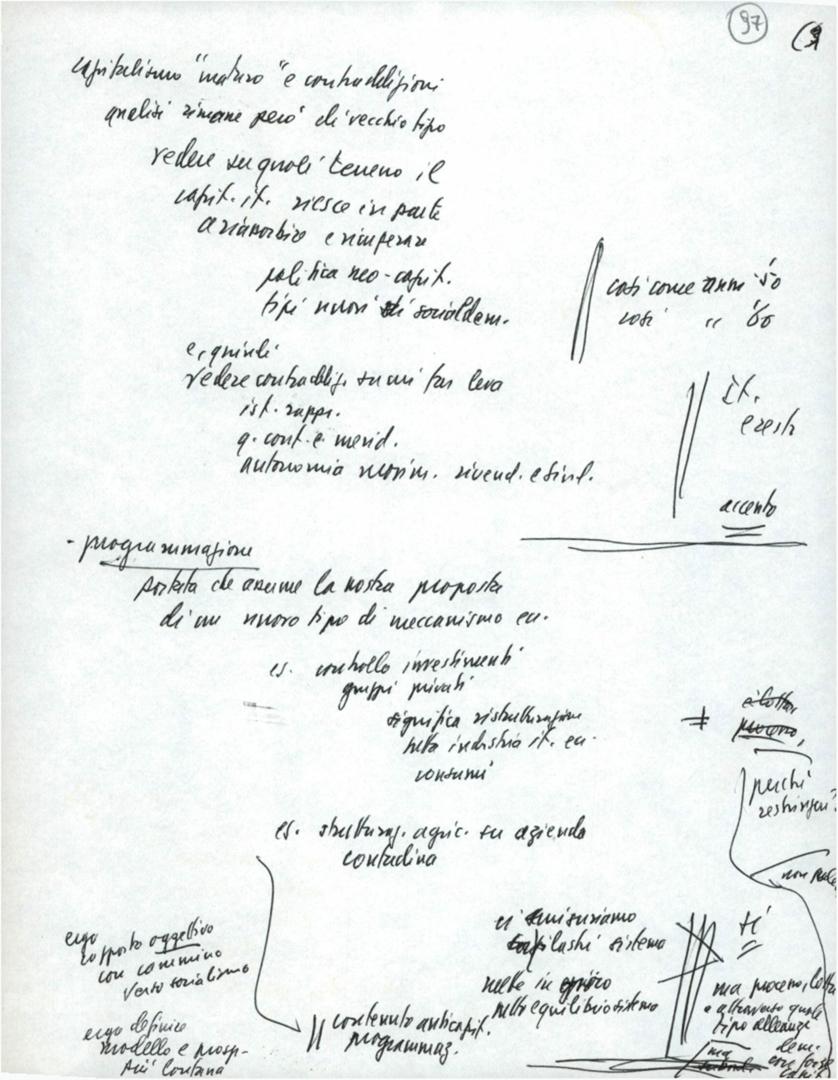 97
capitalismo "maturo" e contraddizioni
analisi rimane però di vecchio tipo
vedere su quali terreno il
capit. it. riesce in parte
a riassorbire e recuperare
politica neo-capit.
tipi nuovi di socialdem.
così come anni '50
così " '60
e, quindi
vedere contraddiz. su cui far leva
ist. rappr.
q. cont. e merid.
autonomia movim. rivend. e sind.
it.
e resto
accento
- programmazione
portata che assume la nostra proposta
di un nuovo tipo di meccanismo ec.
es. controllo investimenti
gruppi privati
significa ristrutturazione
tutta industria it. ec.
consumi
≠
perché
es. struttura. agric. su azienda
contadina
non
ergo
rapporto oggettivo
con cammino
verso socialismo
ergo definire
modello e prosp.
più lontana
contenuto anticapit.
programmaz.
ci misuriamo
sistema
mette in
nell'equilibrio sistema
sì
ma processo, lotta
e attraverso quale
tipo alleanze
ma